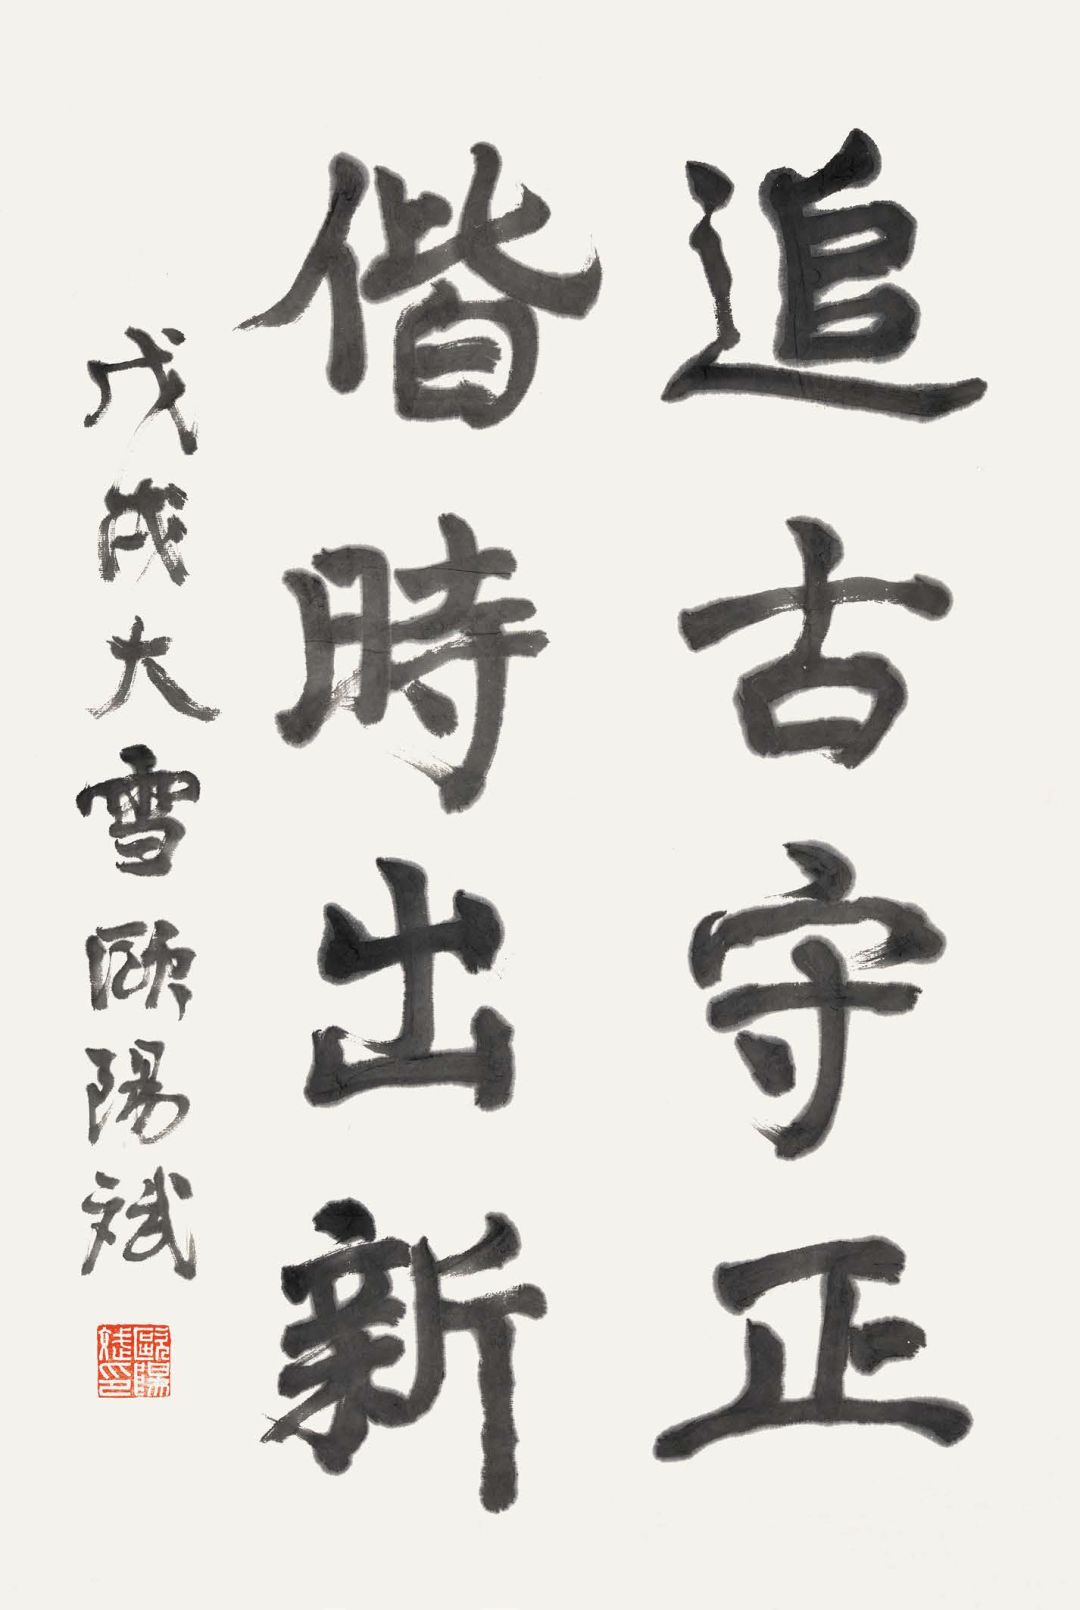 追古守正
偕時出新
戊戌大雪歐陽斌
歐陽斌印